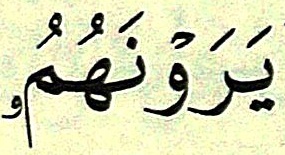 يَرَوْنَهُمُۥ